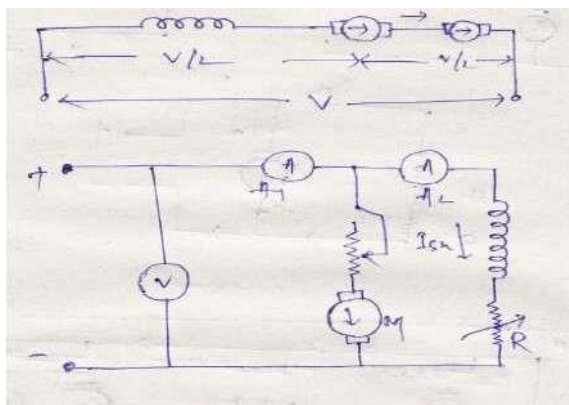 V/2 V/2
V
+ A A
A1 A2
Ish
V
M
- R